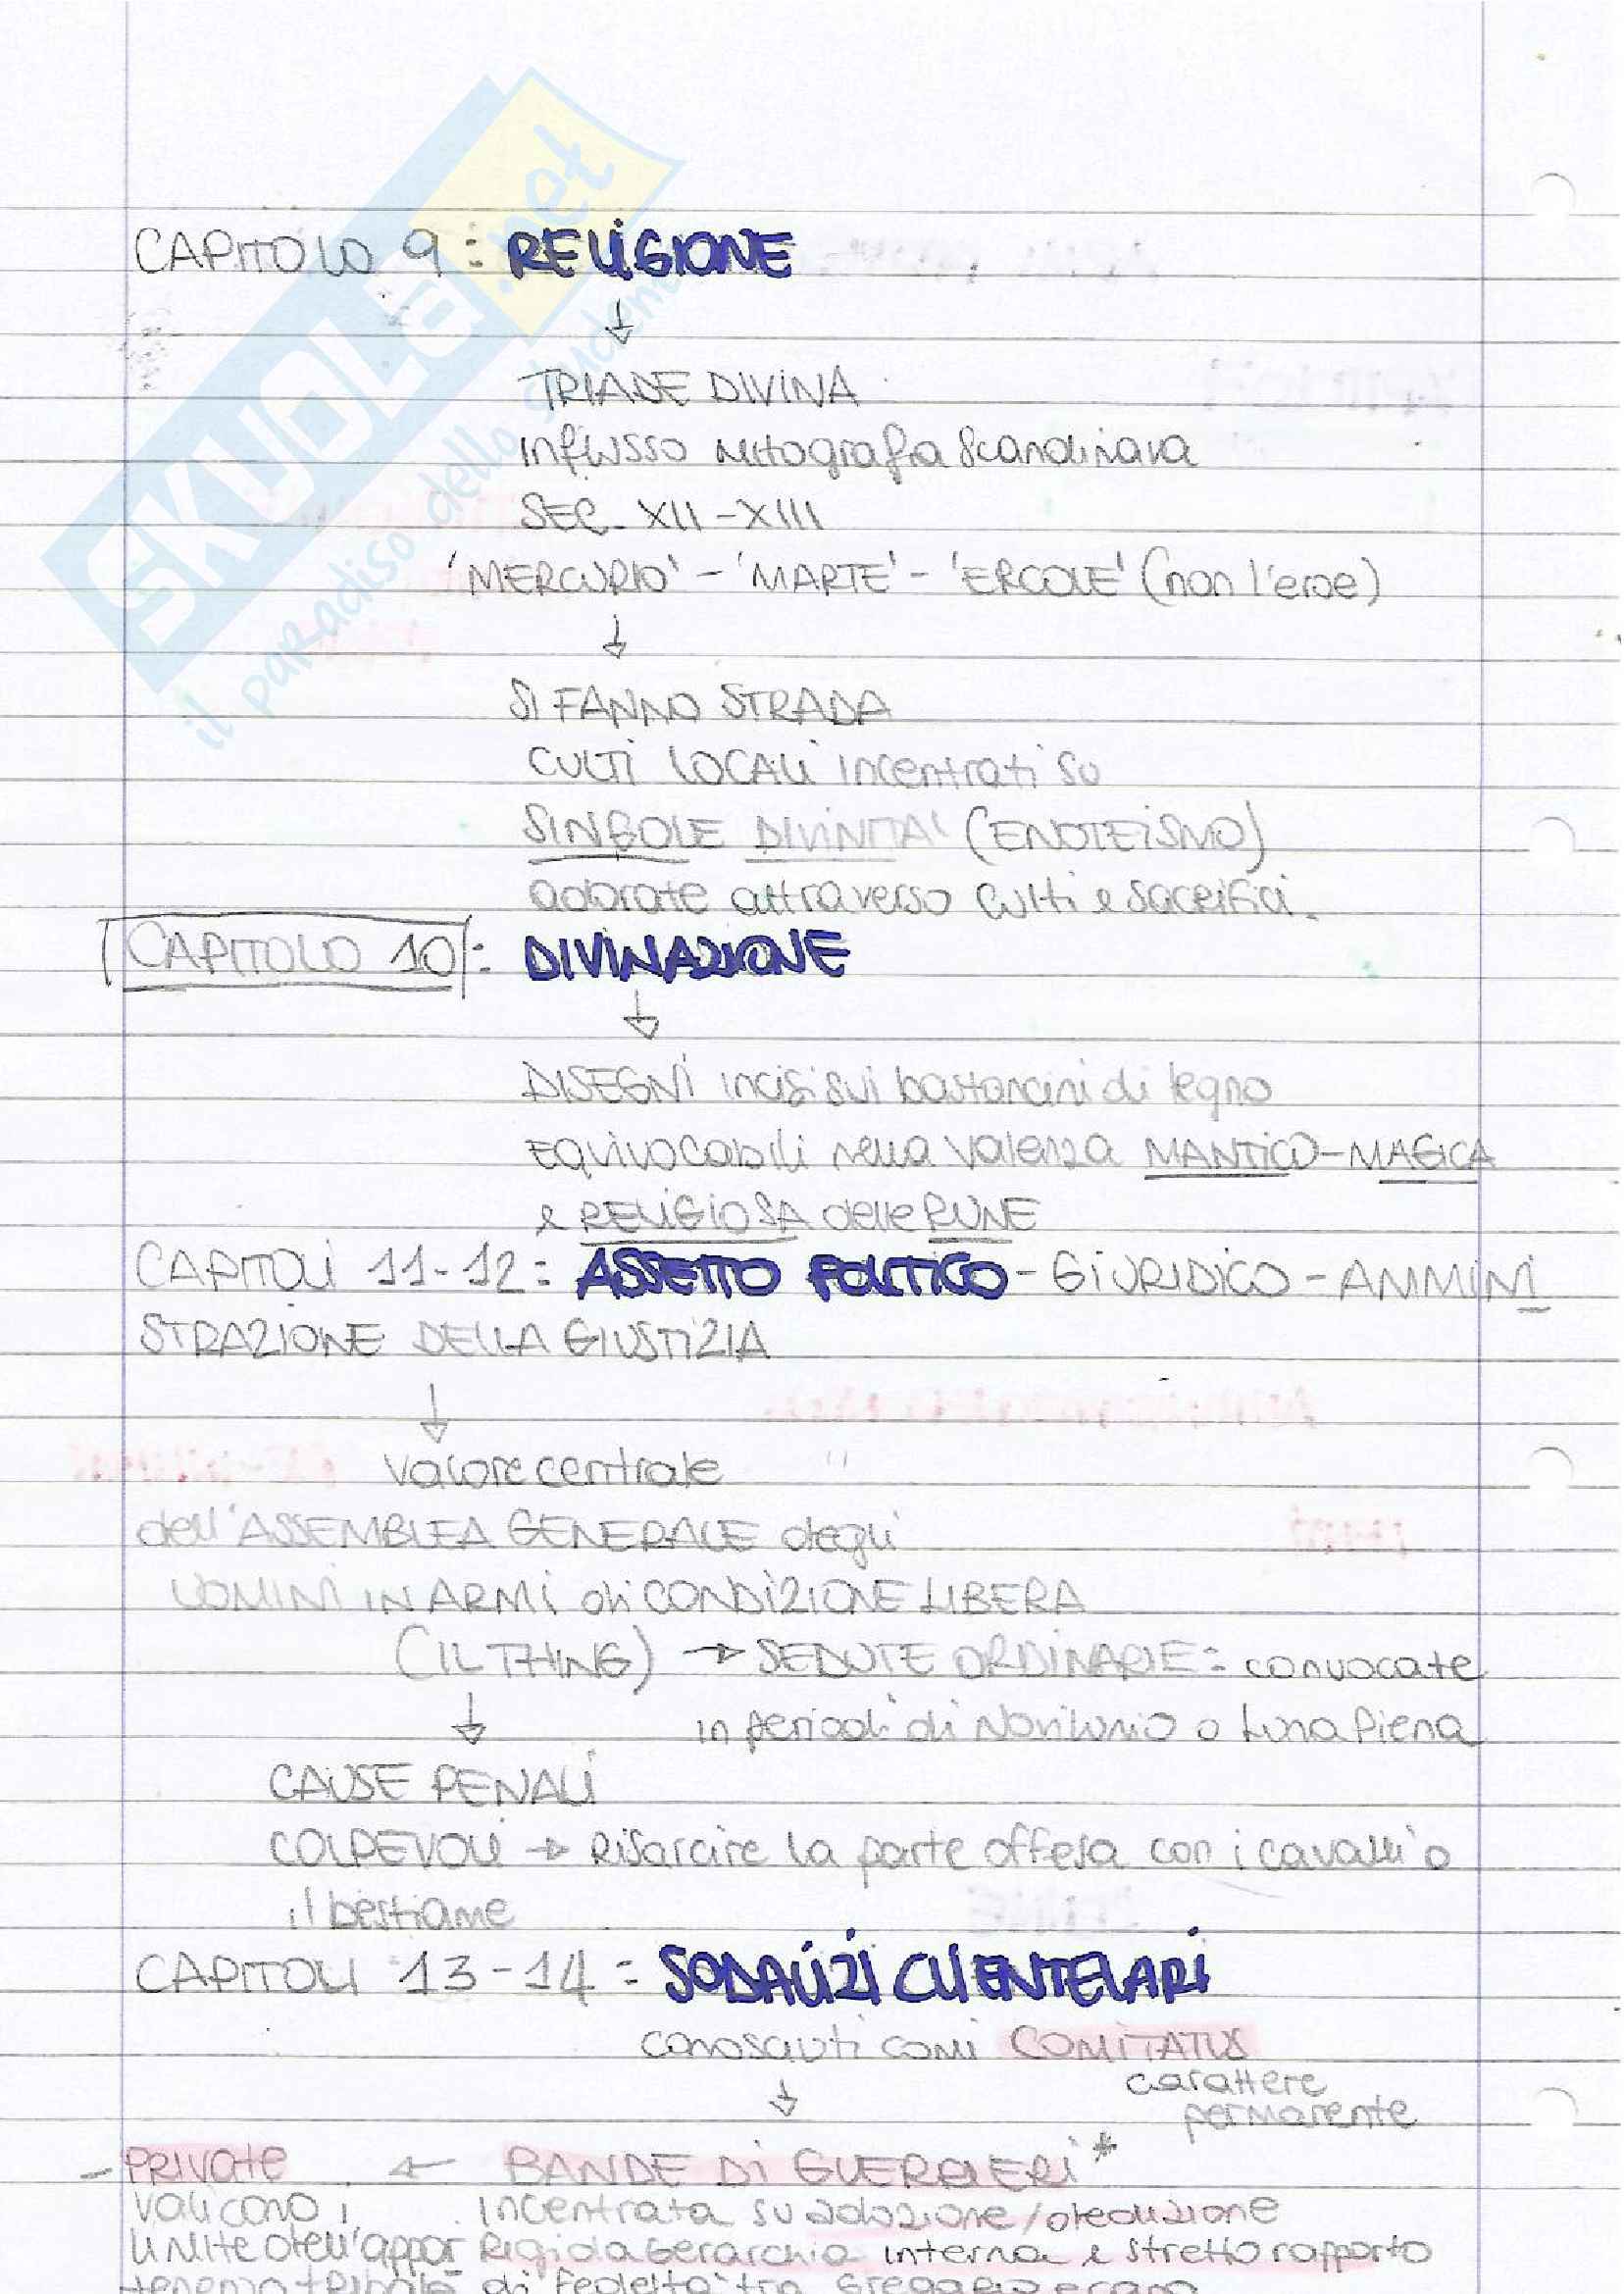 SKUOLA.net
il paradiso dello studente
CAPITOLO 9: RELIGIONE
↓
TRIADE DIVINA
Influsso mitografia Scandinava
SEC. XII-XIII
'MERCURIO' - 'MARTE' - 'ERCOLE' (non l'eroe)
↓
SI FANNO STRADA
CULTI LOCALI incentrati su
SINGOLE DIVINITA' (ENOTEISMO)
adorate attraverso culti e sacrifici.
CAPITOLO 10: DIVINAZIONE
↓
DISEGNI incisi sui bastoncini di legno
EQUIVOCABILI nella valenza MANTICO-MAGICA
e RELIGIOSA delle RUNE
CAPITOLI 11-12: ASSETTO POLITICO-GIURIDICO-AMMINI
STRAZIONE DELLA GIUSTIZIA
↓
Valore centrale
dell'ASSEMBLEA GENERALE degli
UOMINI IN ARMI di CONDIZIONE LIBERA
(IL THING) → SEDUTE ORDINARIE: convocate
↓ in periodi di Novilunio o Luna Piena
CAUSE PENALI
COLPEVOLI → Risarcire la parte offesa con i cavalli o
il bestiame
CAPITOLI 13-14: SODALIZI CLIENTELARI
conosciuti comi COMITATUS
carattere
↓ permanente
- PRIVATE ← BANDE DI GUERRIERI *
valicano i incentrata su adozione/dedizione
limite dell'appar Rigida Gerarchia interna e stretto rapporto
tenenza tribale di fedeltà tra Gregario e capo